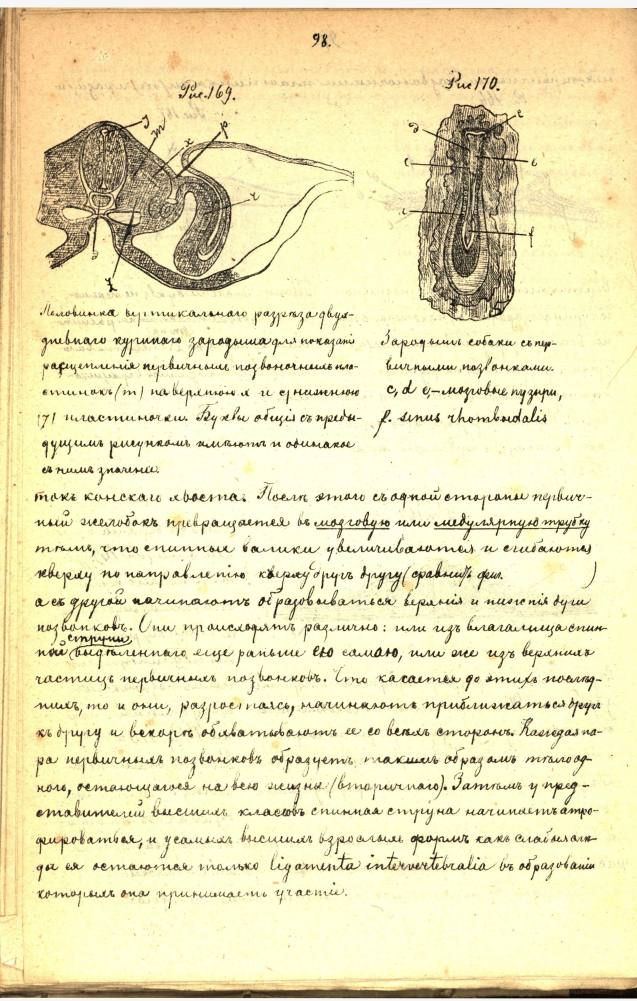 98.
Рис. 169.
Рис 170.
Половинка вертикальнаго разрѣза двух-
дневнаго куринаго зародыша для показанія
расщепленія первичныхъ позвоночныхъ пла-
стинокъ (m) на верхнюю x и нижнюю
(7) пластиночки. Буквы общія съ преды-
дущимъ рисункомъ имѣютъ и одинакое
съ нимъ значеніе.
Зародышъ собаки съ пер-
вичными позвонками.
c, d e, – мозговые пузыри,
f. sinus rhomboidalis
такъ конскаго хвоста. Послѣ этого съ одной стороны первич-
ный желобокъ превращается въ мозговую или медулярную трубку
тѣмъ, что спинные валики увеличиваются и сгибаются
кверху по направленію кверху другъ другу (сравнить фиг. )
а съ другой начинаютъ образовываться верхнія и нижнія дуги
позвонковъ. Они происходятъ различно: или изъ влагалища спин-
ной струны выдѣленнаго еще раньше ею самою, или же изъ верхнихъ
частицъ первичныхъ позвонковъ. Что касается до этихъ послѣд-
нихъ, то и они, разростаясь, начинаютъ приближаться другъ
къ другу и вскорѣ обхватываютъ ее со всѣхъ сторонъ. Каждая па-
ра первичныхъ позвонковъ образуетъ такимъ образомъ тѣло од-
ного, остающагося на всю жизнь (вторичнаго). Затѣмъ у пред-
ставителей высшихъ классовъ спинная струна начинаетъ атро-
фироваться, и у самыхъ высшихъ взрослыхъ формъ какъ слабые слѣ-
ды ея остаются только ligamenta intervertebralia въ образованіи
которыхъ она принимаетъ участіе.